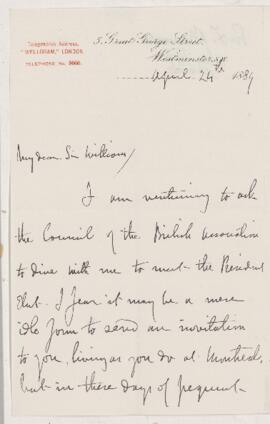 Telegraphic Address,
"WELLGRAM," LONDON.
TELEPHONE No.
3, Great George Street,
Westminster, S.W.
April 24th 1889
My dear Sir William,
I am venturing to ask
the Council of the British Association
to dine with me to meet the President
Elect. I fear it may be a mere
idle form to send an invitation
to you, living as you do at Montreal,
but in these days of frequent-